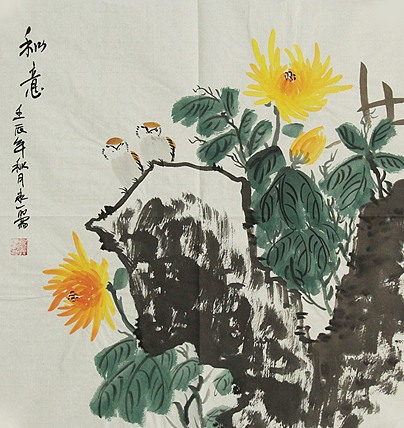 秋意
壬辰年秋月